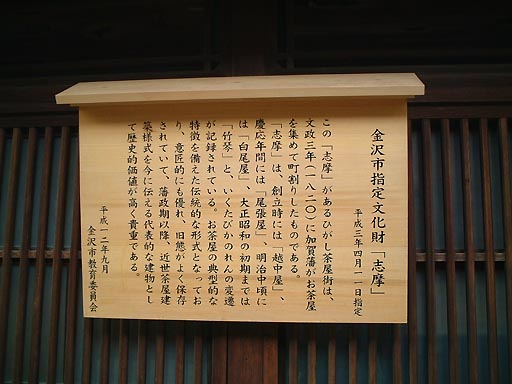 金沢市指定文化財「志摩」
平成三年四月一一日指定
この「志摩」があるひがし茶屋街は、
文政三年(一八二〇)に加賀藩がお茶屋
を集めて町割りしたものである。
「志摩」は、創立時には「越中屋」、
慶応年間には「尾張屋」、明治中頃に
は「臼尾屋」、大正昭和の初期までは
「竹琴」と、いくたびかのれんの変遷
が記録されている。お茶屋の典型的な
特徴を備えた伝統的な形式となってお
り、意匠的にも優れ、旧態がよく保存
されていて、藩政期以降、近世茶屋建
築様式を今に伝える代表的な建物とし
て歴史的価値が高く貴重である。
平成一二年九月
金沢市教育委員会